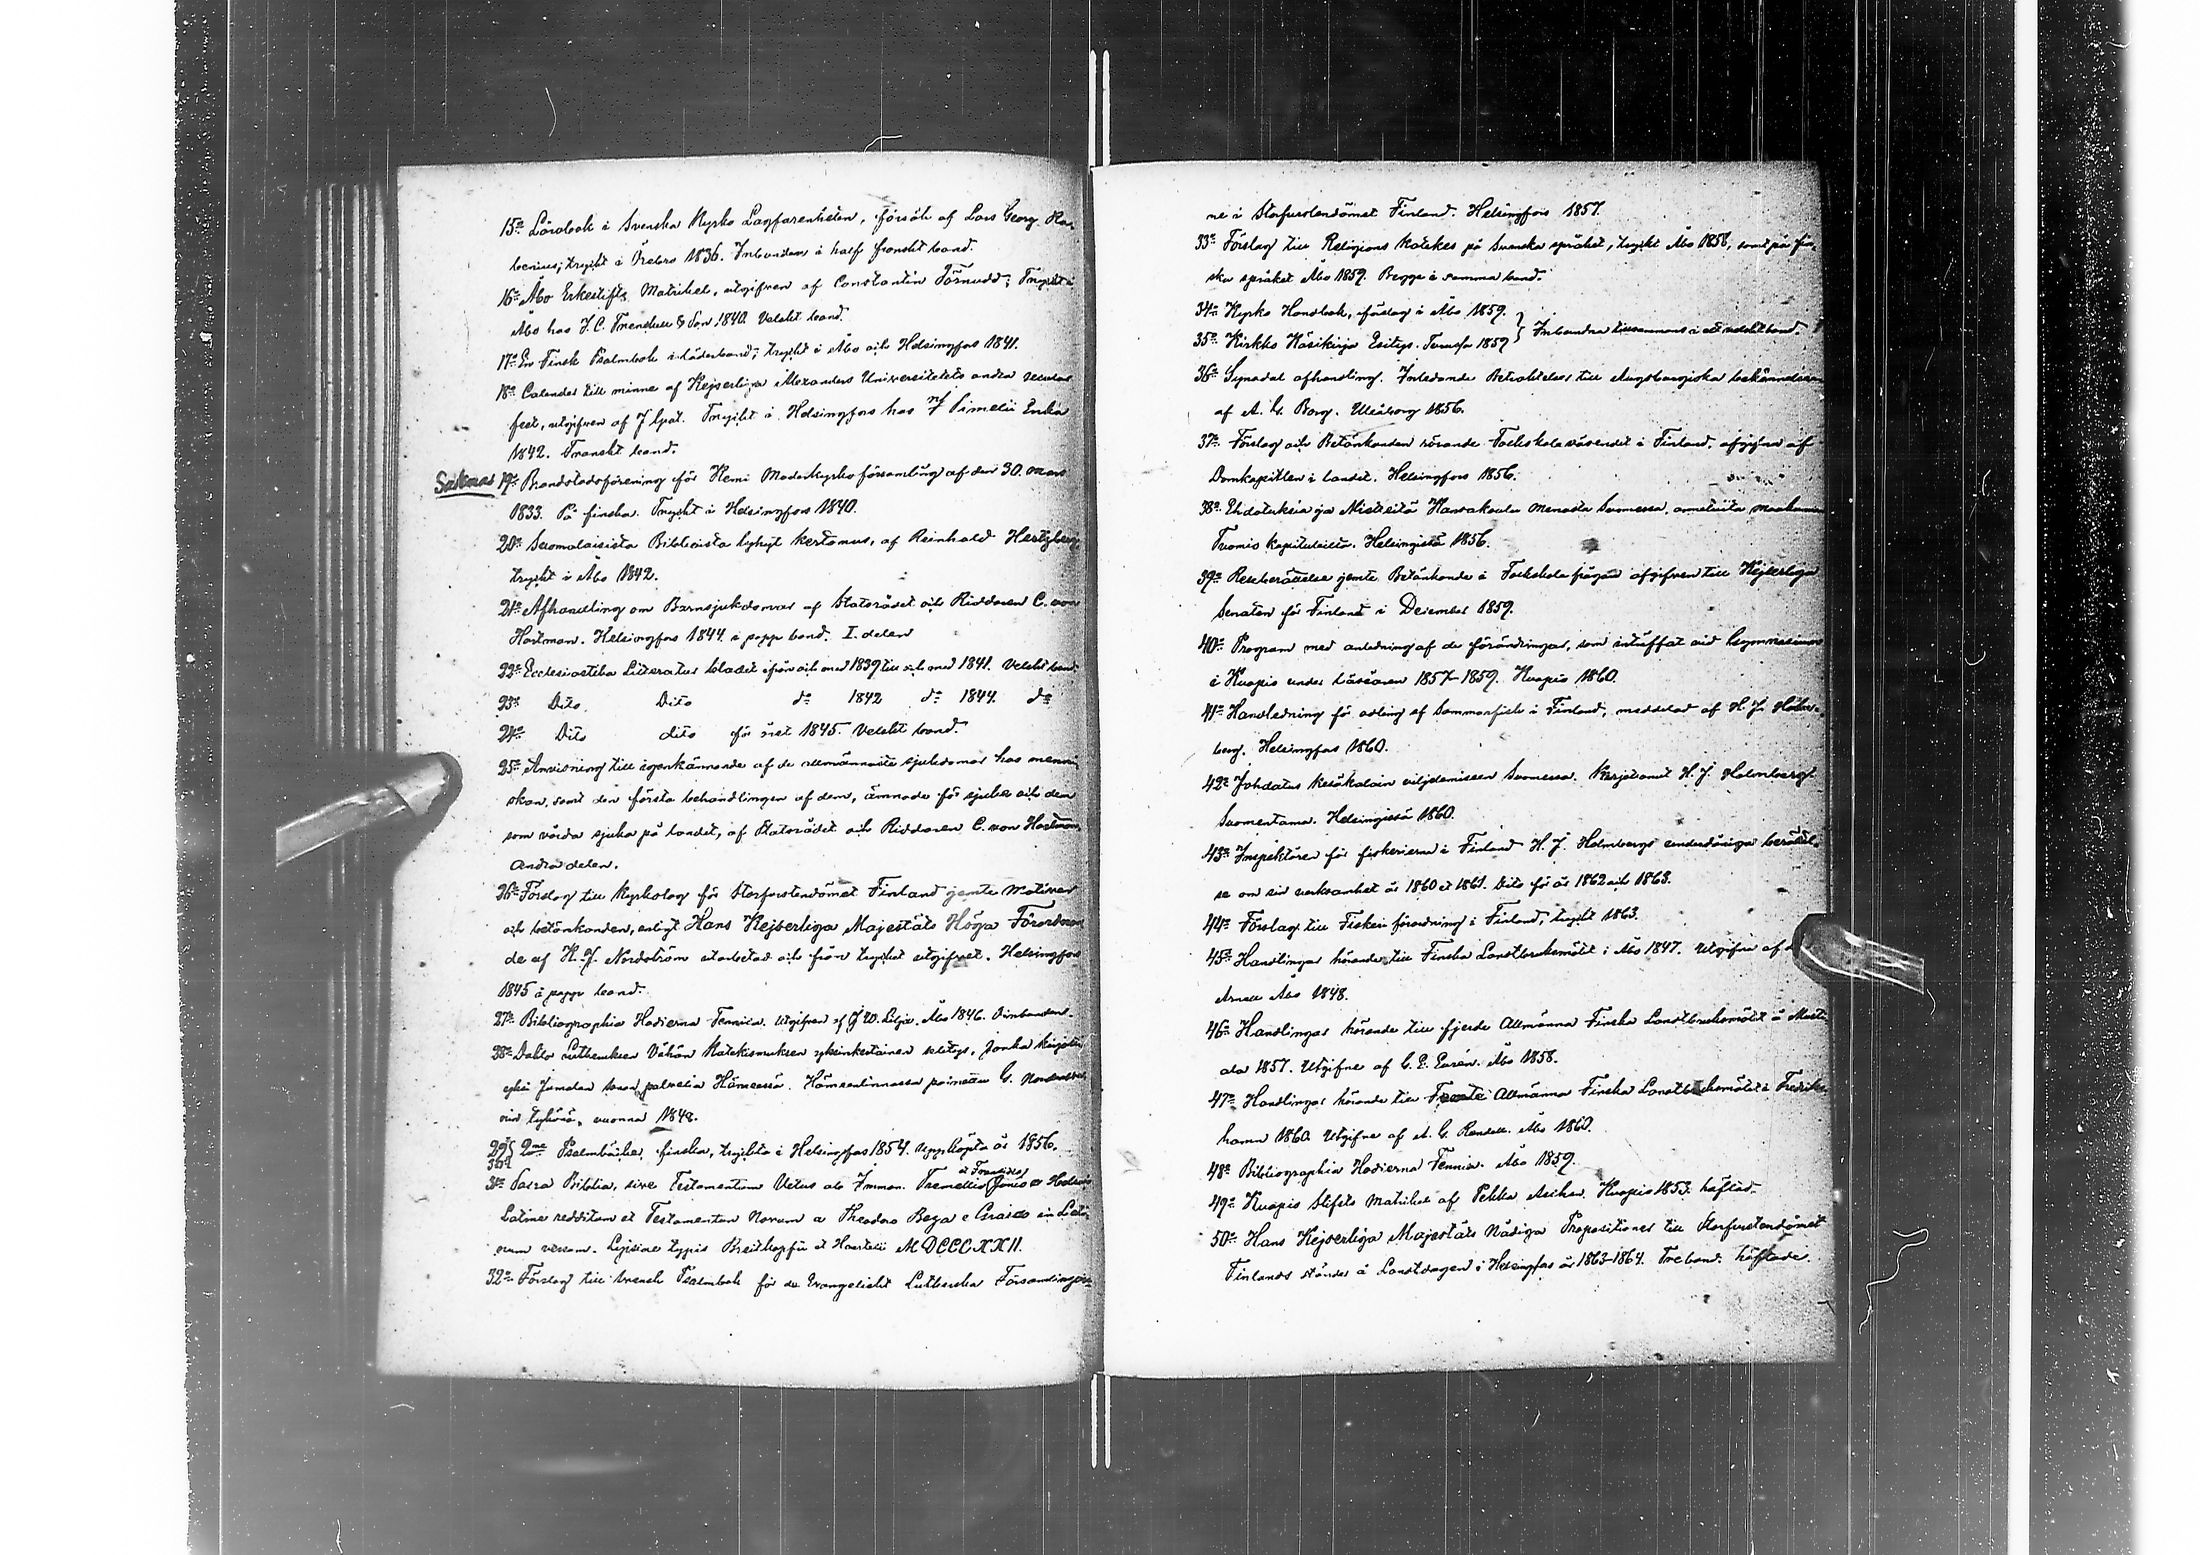 15o Lärobok i Svenska Kyrko Lagfarenheten, försök af Lars Georg Ra-
benius; tryckt i Örebro 1836. Inbunden i half franskt band.
16o Åbo Erkestifts Matrikel, utgifven af Constantin Törnudd; Tryckt i
Åbo hos J. C. Frenckell & Son 1840. Velskt band.
17o En Finsk Psalmbok i läderband; tryckt i Åbo och Helsingfors 1841.
18o Calender till minne af Kejserliga Alexanders Universitetets andra secular
fest, utgifven af J Ipat. Tryckt i Helsingfors hos Simelii Enka
1842. Franskt band.
Saknas 19o Brandstodsförening för Kemi Moderkyrko församling af den 30. mars
1833. På finska. Tryckt i Helsingfors 1840.
20o Suomalaisista Biblioista lyhyt kertomus, af Reinhold Hertzberg,
tryckt i Åbo 1842.
21o Afhandling om Barnsjukdomar af Statsrådet och Riddaren C. von
Hartman. Helsingfors 1844. i papp band. I. delen
22o Ecclesiastika Litteratur bladet ifrån och med 1839 till och med 1841. Velskt band.
23o Dito Dito do 1842 do 1844. do
24o Dito dito för året 1845. Velskt band.
25o Anvisning till igenkännande af de allmännaste sjukdomar hos menni-
skan, samt den första behandlingen af dem, ämnade för sjuke och dem
som vårda sjuka på landet, af Statsrådet och Riddaren C. von Hartman,
Andra delen.
26o Förslag till Kyrkolag för Storfurstendömet Finland jemte Motiver
och betänkanden, enligt Hans Kejserliga Majestäts Höga Förordnan-
de af K. J. Nordström utarbetad och från trycket utgifvet. Helsingfors
1845 i papp band.
27o Bibliographia Hodierna Fennica. Utgifven af J W. Lilja. Åbo 1846. Oinbunden.
28o Doktor Lutheruksen Vähän Katekismuksen yksinkertainen selitys, jonka kirjotti
yksi Jumalan sanan palvelia Hämeessä. Hämeenlinnassa
vuonna 1848.
29o 2ne Psalmböcker, finska, tryckta i Helsingfors 1854. Uppköpta år 1856.
30o
31o Sacra Biblia, sive Testamentum Vetus ab Imman. Tremellio à Francisco Junio ex Hebraeo
Latine redditum et Testamentum Novum a Theodoro Beza e Graeco in Lati-
num versum. Lipsiae typis Breitkopfii et Haertelii MDCCCXXII.
32o Förslag till Svensk Psalmbok för de Evangeliskt Lutherska Församlingar-
ne i Storfurstendömet Finland. Helsingfors 1857.
33o Förslag till Religions Katekes på Svenska språket, tryckt Åbo 1858, samt på fin-
ska språket Åbo 1859. Begge i samma band.
34o Kyrko Handbok, förslag i Åbo 1859.
35o Kirkko Käsikirja Esitys. Turussa 1859 } Inbundna tillsammans i ett velskt band.
36o Synodal afhandling. Inledande Betraktelser till Augsburgiska bekännelsen
af A. G. Borg. Uleåborg 1856.
37o Förslag och Betänkanden rörande Folkskoleväsendet i Finland, afgifna af
Domkapitlen i landet. Helsingfors 1856.
38o Ehdotuksia ja Mietteitä Kansakoulu menosta Suomessa, annetuita maakunnan
Tuomio kapituleilta. Helsingissä 1856.
39o Reseberättelse jemte Betänkande i Folkskole frågan afgifven till Kejserliga
Senaten för Finland i December 1859.
40o Program med anledning af de förändringar, som inträffat vid Gymnasium
i Kuopio under läsåren 1857-1859. Kuopio 1860.
41o Handledning för odling af Sommarfisk i Finland, meddelad af H. J. Holm-
berg. Helsingfors 1860.
42o Johdatus kesäkalain viljelemiseen Suomessa. Kirjottanut H. J. Holmberg.
Suomentama. Helsingissä 1860.
43o Inspektören för fiskerierna i Finland H. J. Holmbergs underdåniga berättel-
se om sin verksamhet år 1860 et 1861. Dito för år 1862 och 1863.
44o Förslag till Fiskeri förordning i Finland, tryckt 1863.
45o Handlingar hörande till Finska Landtbruksmötet i Åbo 1847. Utgifna af
Arnell Åbo 1848.
46o Handlingar hörande till fjerde Allmänna Finska Landtbruksmötet å Musti-
ala 1857. Utgifne af G. E. Eurén. Åbo 1858.
47o Handlingar hörande till Femte Allmänna Finska Landtbruksmötet i Fredriks-
hamn 1860. Utgifne af A. G. Randell. Åbo 1860.
48o Bibliographia Hodierna Fennica. Åbo 1859.
49o Kuopio Stifts Matrikel af Pekka Aschan. Kuopio 1853. häftad.
50o Hans Kejserliga Majestäts Nådiga Propositioner till Storfurstendömet
Finlands ständer å Landtdagen i Helsingfors år 1863-1864. Tre band. häftade.